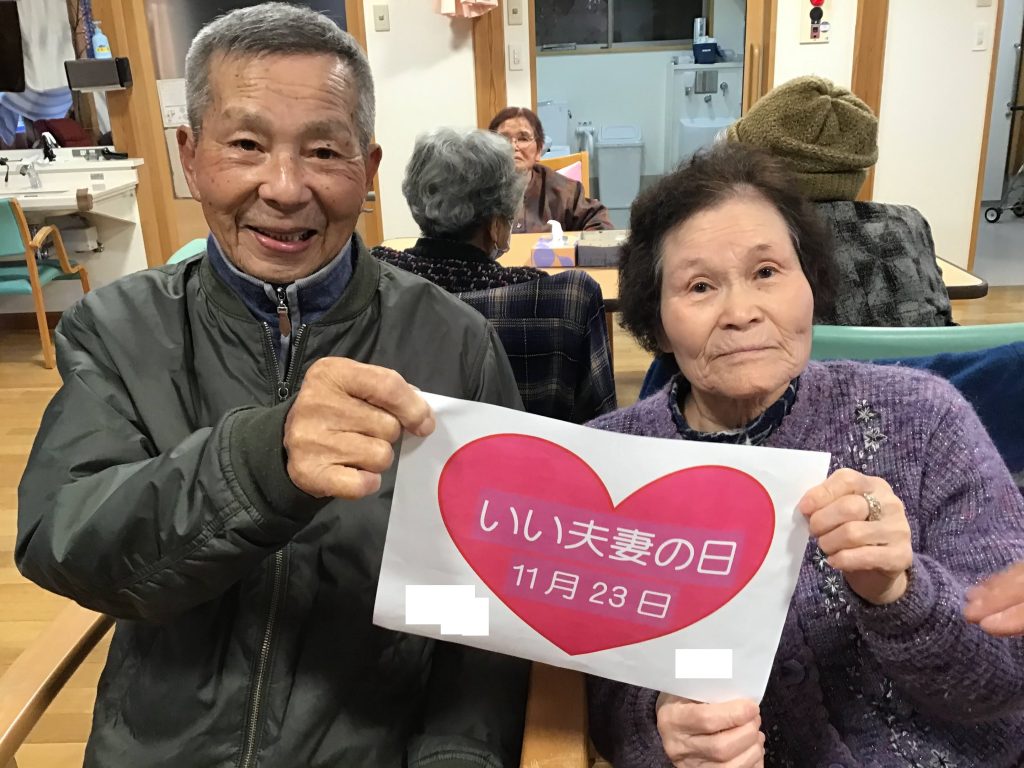 いい夫妻の日
11月23日